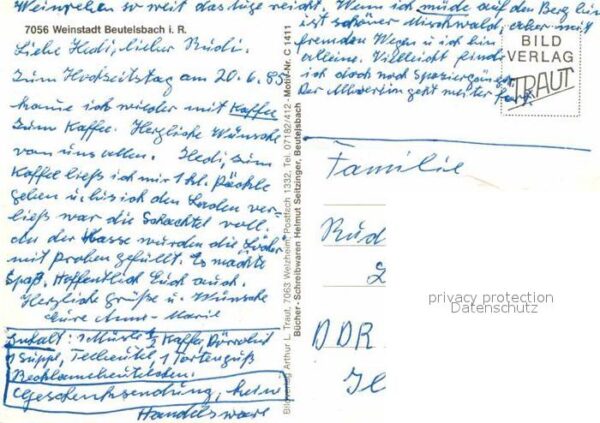 Weinreben so weit das Auge reicht. Wenn ich müde auf den Berg bin
ist schöner Mischwald, aber mit
fremden Wegen u. ich bin
alleine. Vielleicht finde
ich doch noch Spaziergänger.
7056 Weinstadt Beutelsbach i. R.
Liebe Hedi, lieber Rudi.
Zum Hochzeitstag am 20.6.85
komme ich wieder mit Kaffee
zum Kaffee. Herzliche Wünsche
von uns allen. Hedi, zum
Kaffee ließ ich mir 1 kl. Päckle
geben u. bis ich den Laden ver-
ließ war die Schachtel voll.
An der Kasse wurden die Löcher
mit Proben gefüllt. Es machte
Spaß. Hoffentlich Euch auch.
Herzliche Grüße u. Wünsche
Eure Anne-Marie
Inhalt: Kaffee,
1 Suppe, Teebeutel, 1 Tortenguß
Geschenksendung, keine
Handelsware
Bildverlag Arthur L. Traut, 7063 Welzheim, Postfach 1332, Tel. 07182/412 - Motiv-Nr. C 1411
Bücher - Schreibwaren Helmut Seitzinger, Beutelsbach
BILD
VERLAG
TRAUT
Familie
Rud
DDR
privacy protection
Datenschutz